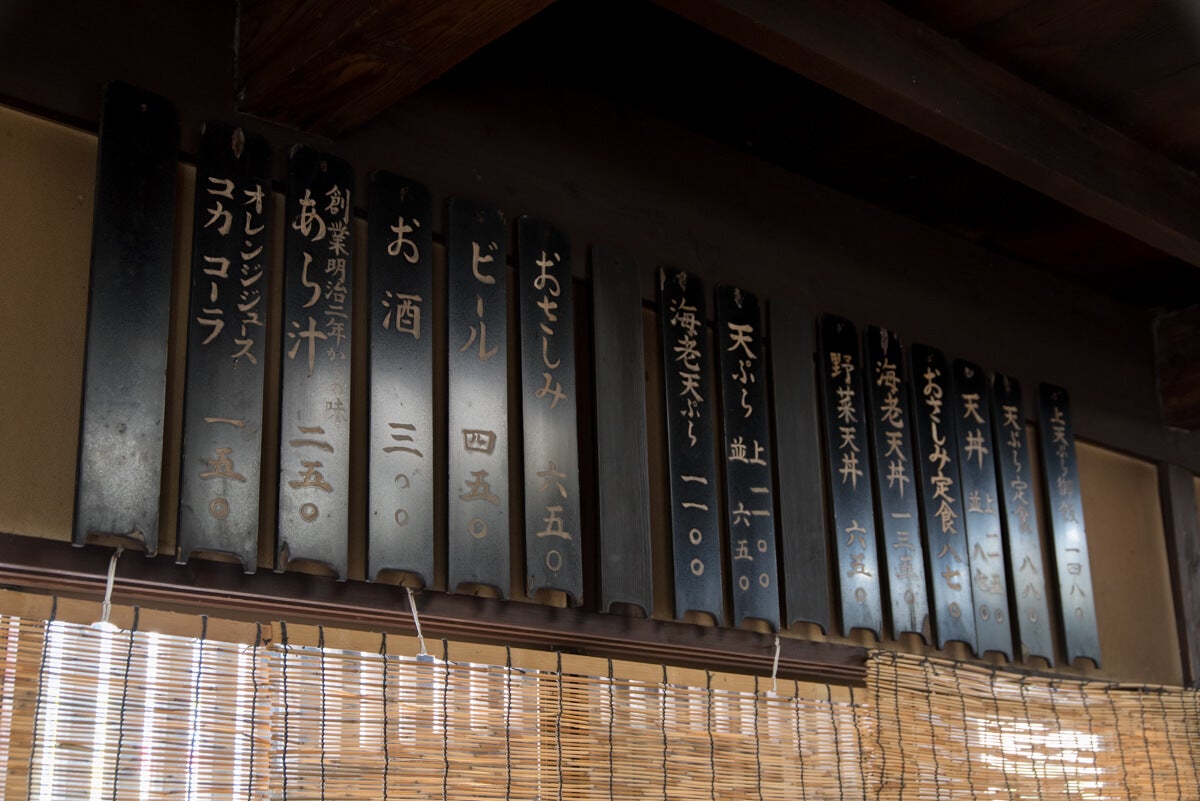 上天ぷら御飯 一四八〇
天ぷら定食 八八〇
天丼 上
並
おさしみ定食 八七〇
海老天丼 一三五〇
野菜天丼 六五〇
天ぷら 上 一一〇〇
並 六五〇
海老天ぷら 一一〇〇
おさしみ 六五〇
ビール 四五〇
お酒 三〇〇
創業明治二年か の味
あら汁 二五〇
オレンジジュース
コカコーラ 一五〇